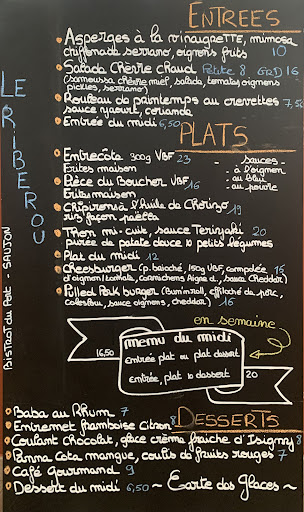 LE RIBEROU
BISTROT du Port - SAUJON
ENTREES
Asperges à la vinaigrette, mimosa
chiffonnade serrano, oignons frits 10
Salade Chèvre chaud Petite 8 GRD 16
(samoussa chèvre miel, salade, tomates, oignons
pickles, serrano)
Rouleau de printemps au crevettes 7,50
sauce yaourt, coriande
Entrée du midi 6,50
PLATS
Entrecôte 300g VBF 23
Frites maison
Pièce du Boucher VBF 16
Frites maison
- sauces -
- à l'oignon
- au bleu
- au poivre
Chipirons à l'huile de Chorizo 19
riz façon paëlla
Thon mi-cuit, sauce Teriyaki 20
purée de patate douce & petits légumes
Plat du midi 12
Cheesburger (p. brioché, 150g VBF, compotée 16
d'oignon/tomate, cornichons Aigre d., sauce Cheddar)
Pulled Pork burger (Bun'n'roll, effiloché de porc,
Coleslaw, sauce oignons, cheddar) 16
en semaine
menu du midi
16,50 entrée plat ou plat dessert
entrée, plat & dessert 20
DESSERTS
Baba au Rhum 7
Entremet framboise Citron 8
Coulant chocolat, glace crème fraiche d'Isigny 8
Panna Cota mangue, coulis de fruits rouges 7
Café Gourmand 9
Dessert du midi 6,50 ~ Carte des Glaces ~